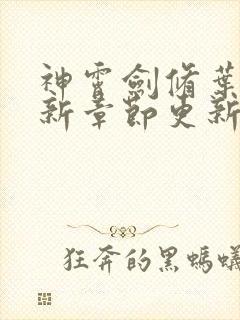 神霄劍脩葉
新章節更新
狂奔的黑螞蟻